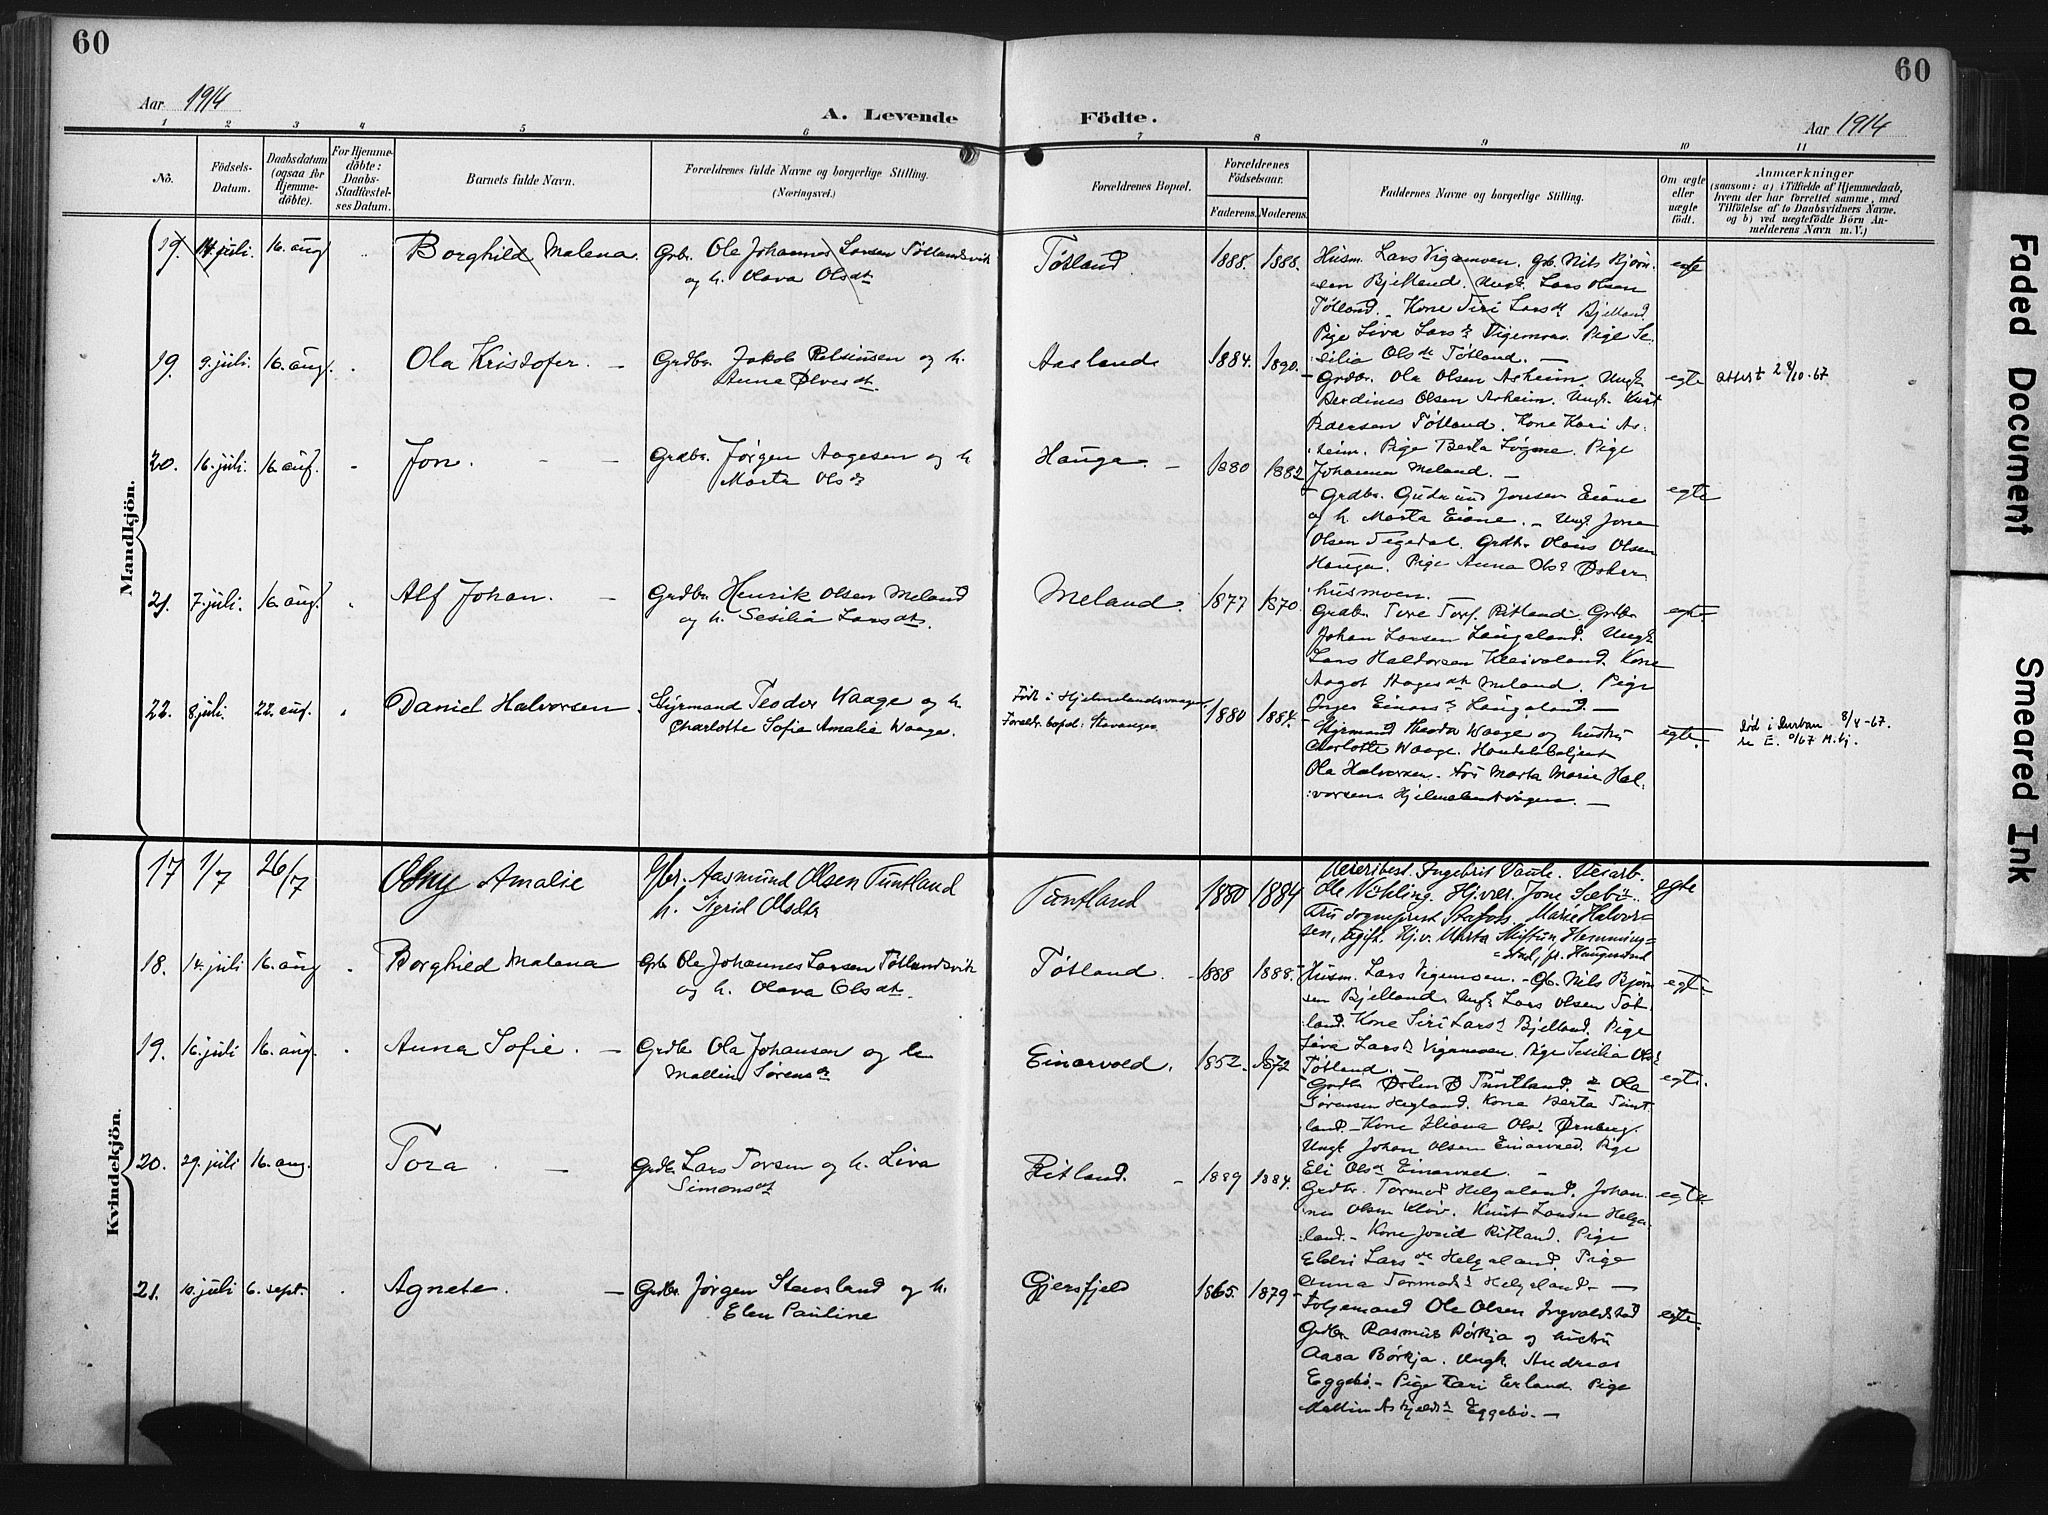 60
60
Aar 1914
A. Levende Födte.
Aar 1914
1 2 3 4 5 6 7 8 9 10 11
Nô.
Födsels-
Datum.
Daabsdatum
(ogsaa for
Hjemme-
döbte).
For Hjemme-
döbte:
Daabs-
Stadfæstel-
ses Datum.
Barnets fulde Navn.
Forældrenes fulde Navne og borgerlige Stilling.
(Næringsvei.)
Forældrenes Bopæl.
Forældrenes
Födselsaar.
Faderens.
Moderens.
Faddernes Navne og borgerlige Stilling.
Om ægte
eller
uægte
födt.
Anmærkninger
(saasom: a) i Tilfælde af Hjemmedaab,
hvem der har forrettet samme, med
Tilföielse af to Daabsvidners Navne.
og b) ved uægtefödte Börn An-
melderens Navn m. V.)
Mandkjön.
19. 14. juli. 16. aug Borghild Malena. Grbr. Ola Johannes Larsen Tøtlandsvik
og h. Olava Olsdt
Tøtland. 1888. 1888.
Husm. Lars Vigamoen. Gb. Nils Bjørn-
sen Bjelland. Ungk. Lars Olsen
Tøtland. Kone Siri Larsdt Bjelland.
Pige Liva Larsdt Vigemoen. Pige Se-
silia Olsdt Tøtland. —
egte
19. 9. juli. 16. aug. Ola Kristofer. — Grdbr. Jakob og h.
Anna Ølvesdt.
Aasland 1884. 1890.
Grdbr. Ola Olsen Asheim. Ungk.
Olsen Asheim. Ungk. Knut
Pedersen Tøtland. Kone Kari As-
heim. Pige Berta Løgme. Pige
Johanna Meland. —
egte attest 28/10-67
20. 16. juli. 16. aug. Jon. — — Grdbr. Jørgen Aagesen og h
Marta Olsdt
Hauga — 1880 1882
Grdbr. Gudmund Jonsen Eiane
og h. Marta Eiane. — Ungk. Jone
Olsen Tegedal. Grdbr. Olaus Olsen
Hauga. Pige Anna Olsdt Øster-
husmoen.
egte
21. 7. juli. 16. aug. Alf Johan. — Grdbr. Henrik Olsen Meland
og h. Sesilia Larsdt.
Meland. 1877 1870.
Grdbr. Tore Torf. Ritland. Grdbr.
Johan Larsen Laugaland. Ungk.
Lars Haldorsen Kleivaland. Kone
Aagot Aagesdt Meland. Pige
Inger Einarsdt Laugaland. —
egte.
22. 8. juli. 22. aug. Daniel Halvorsen Styrmand Teodor Waage og h.
Charlotte Sofie Amalie Waage.
Født i Hjelmelandsvaagen.
Foreldr. bopel: Stavanger 1880 1884.
Styrmand Theodor Waage og hustru
Charlotte Waage. Handelsbetjent
Ola Halvorsen. Fru Marta Marie Hal-
vorsen Hjelmelandsvågen. —
egte. Død i Durban 8/4-67.
Kvindekjön.
17 1/7 26/7 Amalie Gbr. Aasmund Olsen Tuntland
h. Sigrid Olsdtr
Tuntland 1880 1884
Ingebrit Veiarb.
Ole Vöhling. Hj.v.er. Jone Sæbö.
Fru sogneprest Marie Halvor-
sen, ugift. Hj.v. Marta Hemming-
stad, pr. Haugesund
egte
18. 14. juli 16. aug Borghild Malena Grb Ola Johannes Larsen Tøtlandsvik
og h. Olava Olsdt.
Tøtland. 1888 1888.
Husm. Lars Vigemoen. — Gb. Nils Bjørn-
sen Bjelland. Ungk. Lars Olsen Tøt-
land. Kone Siri Larsdt Bjelland. Pige
Liva Larsdt Vigamoen. Pige Sesilia Olsdt
Tøtland. —
egte
19. 16. juli 16. aug. Anna Sofie. — Grdb. Ola Johansen og h.
Mallin Sørensdt
Einarvold. 1852. 1872
Grdbr Østen Ø Tuntland. Ola
Sørensen Hegland. Kone Berta Tunt-
land. — Kone Eliana Olsdt Ørnberg.
Ungk Johan Olsen Einarvold. Pige
Eli Olsdt Einarvold. —
egte.
20. 29. juli 16. aug. Tora. — Grdb. Lars Torsen og h. Liva
Simonsdt
Ritland. — 1889 1884.
Grdbr. Tormod Helgaland. Johan-
nes Olsen Kløv. Knut Larsen Helga-
land. — Kone Josid Ritland. Pige
Eldri Larsdt Helgaland. Pige
Anna Tormodsdt Helgaland. —
egte.
21. 10. juli 6. sept. Agnete. — Grdb. Jørgen Stensland og h.
Elen Pauline
Gjersfjeld 1865. 1879
Følgemand Ole Olsen Ingvaldstad
Grdbr. Rasmus Børkja og hustru
Aasa Børkja. Ungk. Andreas
Eggebö. — Pige Kari Erland. Pige
Mallin Eggebö. —
egte.
Faded Document
Smeared Ink